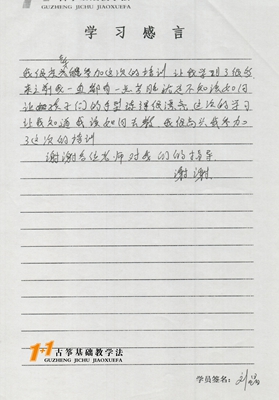 GUZHENG JICHU JIAOXUEFA
学习感言
我很荣幸能参加这次的培训 让我学到了很多
来之前我一直都有一些
让孩子们的手型保持很漂亮 这次的学习
让我知道我该如何去教 我很高兴我参加
了这次的培训
谢谢各位老师对我们的指导
谢谢
1+1古筝基础教学法
GUZHENG JICHU JIAOXUEFA
学员签名：刘